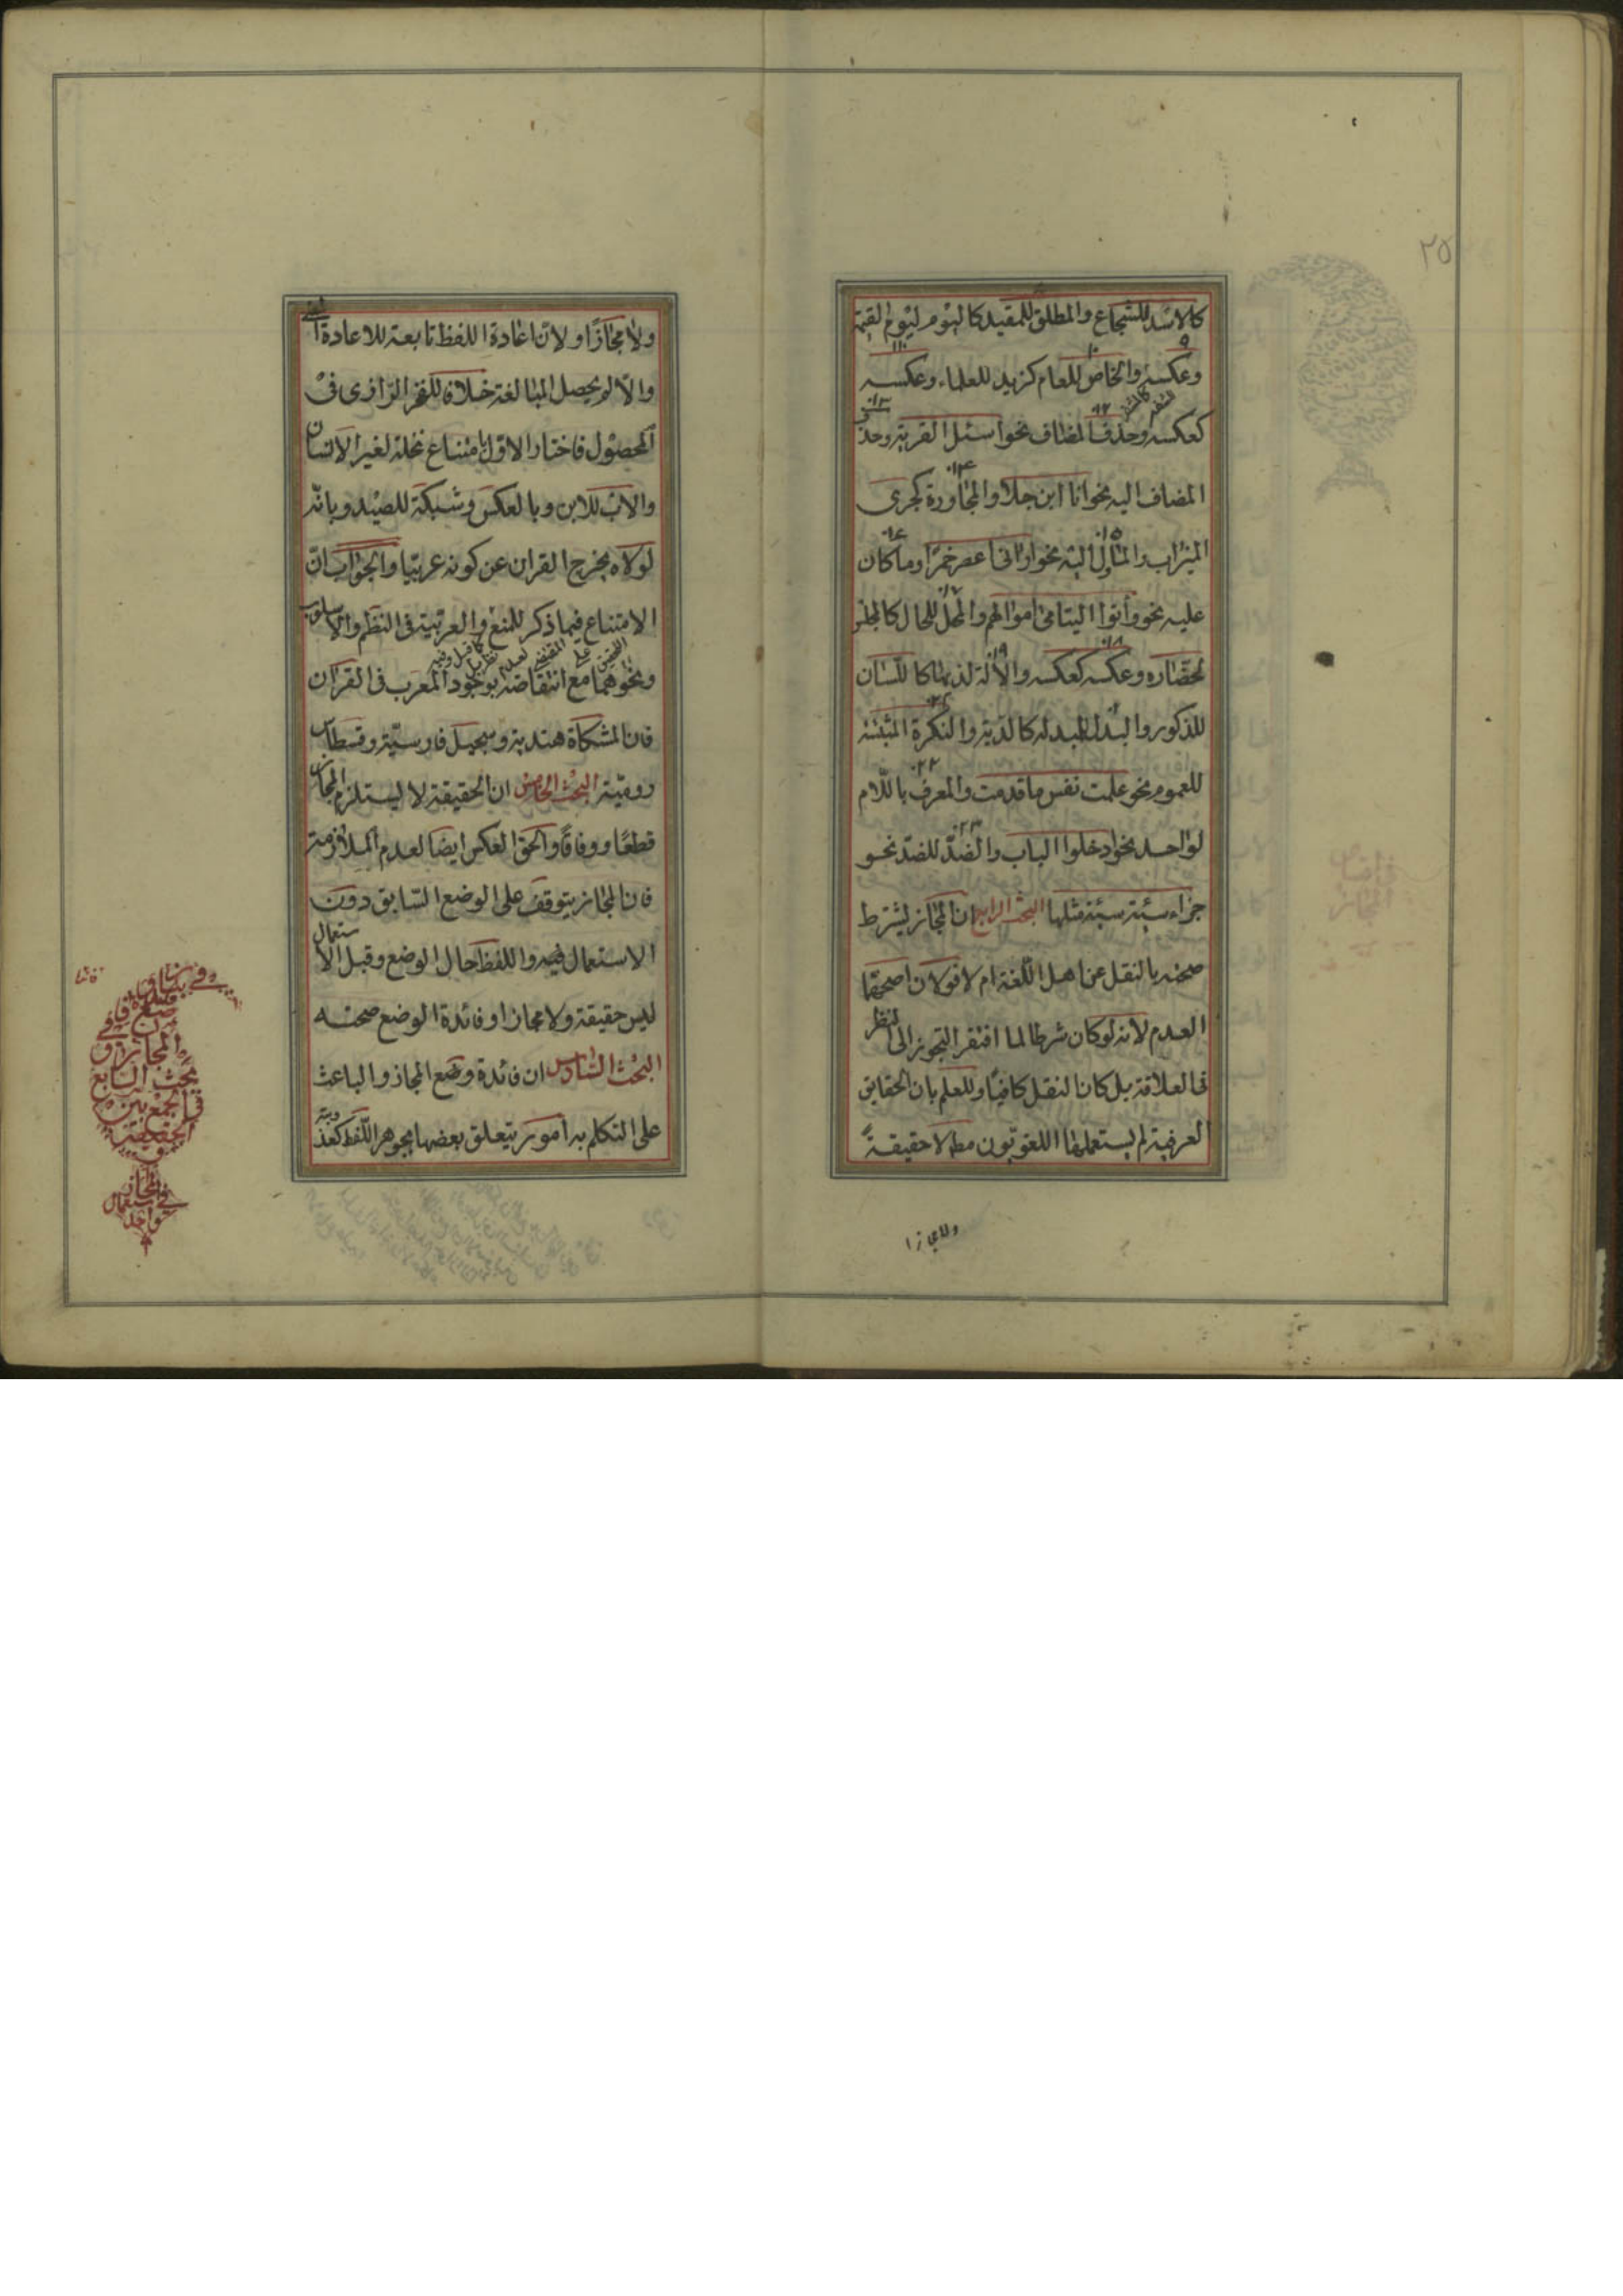 ٢٥
كالاسد للشجاع والمطلق للمقيد كاليوم ليوم القيمة
وعكسه والخاص للعام كزيد للعلماء وعكسه
كعكسه وحذف المضاف نحو اسئل القرية وحذف
المضاف اليه نحو انا ابن جلا والمجاورة كجرى
الميزاب والماول اليه نحو اراني اعصر خمرا وما كان
عليه نحو وأتوا اليتامى اموالهم والمحل للحال كالمجلس
لحضاره وعكسه كعكسه والالة لذيها كاللسان
للذكور والبدل للمبدله كالدية والنكرة المثبتة
للعموم نحو علمت نفس ما قدمت والمعرف باللام
لواحد نحو ادخلوا الباب والضد للضد نحو
جزاء سيئة سيئة مثلها البحث الرابع ان المجاز يشترط
صحته بالنقل عن اهل اللغة ام لا قولان اصحهما
العدم لانه لو كان شرطا لما افتقر التجوز الى النظر
في العلاقة بل كان النقل كافيا وللعلم بان الحقايق
العرفية لم يستعملها اللغويون مط لا حقيقة
ولا مجازا
ولا مجازا ولان اعادة اللفظ تابعة للاعادة المعنى
والا لم يحصل المبالغة خلافا للفخر الرازى في
المحصول فاختار الاول بامتناع نخلة لغير الانسان
والاب للابن وبالعكس وشبكة للصيد وبانه
لولاه يخرج القران عن كونه عربيا والجواب ان
الامتناع فيما ذكر للمنع والعربية في النظم والاسلوب
ونحوهما مع انتقاضه بوجود المعرب في القران
فان المشكاة هندية وسجيل فارسية وقسطاس
رومية البحث الخامس ان الحقيقة لا يستلزم المجاز
قطعا ووفاقا والحق العكس ايضا لعدم الملازمة
فان المجاز يتوقف على الوضع السابق دون
الاستعمال فيه واللفظ حال الوضع وقبل الاستعمال
ليس حقيقة ولا مجازا وفائدة الوضع صحته
البحث السادس ان فائدة وضع المجاز والباعث
على التكلم به امور يتعلق بعضها بجوهر اللفظ كعذوبته
وفي بيان
المجاز و
بحث السابع
في الجمع بين
الحقيقة
و
المجاز
في استعمال
واحد